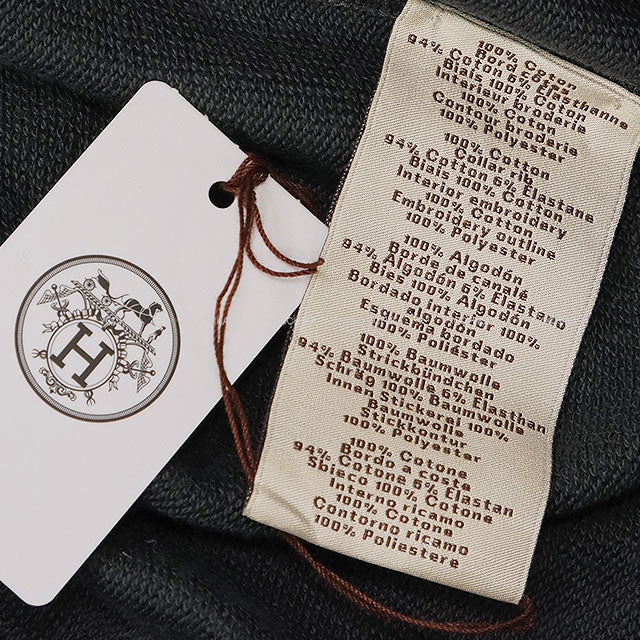 H
100% Coton
Bord côtes
94% Coton 6% Elasthanne
Biais 100% Coton
Interieur broderie
100% Coton
Contour broderie
100% Polyester
100% Cotton
Collar rib
94% Cotton 6% Elastane
Biais 100% Cotton
Interior embroidery
100% Cotton
Embroidery outline
100% Polyester
100% Algodón
Borde de canalé
94% Algodón 6% Elastano
Bies 100% Algodón
Bordado interior 100%
algodón
Esquema bordado
100% Poliéster
100% Baumwolle
Strickbündchen
94% Baumwolle 6% Elasthan
Schräg 100% Baumwolle
Innen Stickerei 100%
Baumwolle
Stickkontur
100% Polyester
100% Cotone
Bordo a coste
94% Cotone 6% Elastan
Sbieco 100% Cotone
Interno ricamo
100% Cotone
Contorno ricamo
100% Poliestere